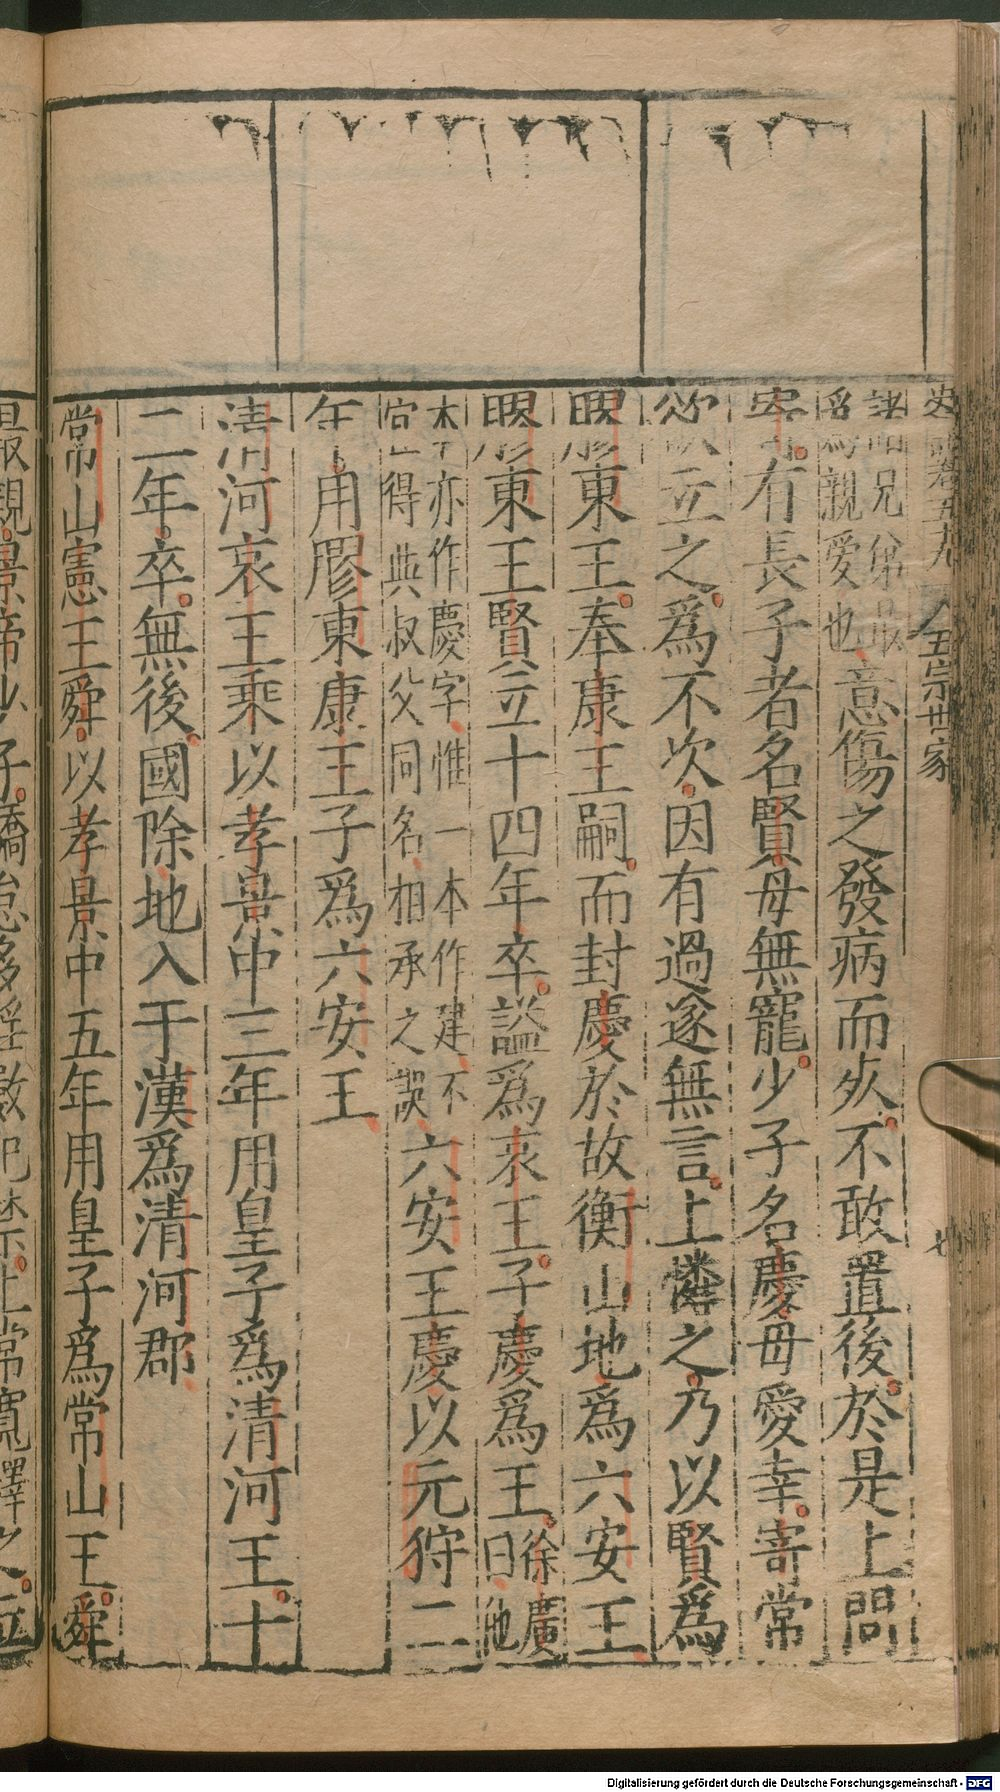 史記卷五十九 五宗世家 七
諸兄弟最
爲親愛也 意傷之發病而死不敢置後於是上問
寄有長子者名賢母無寵少子名慶母愛幸寄常
欲立之爲不次因有過遂無言上憐之乃以賢爲
膠東王奉康王嗣而封慶於故衡山地爲六安王
膠東王賢立十四年卒謚爲哀王子慶爲王 徐廣
曰他
本亦作慶字惟一本作建不
宜得與叔父同名相承之誤 六安王慶以元狩二
年用膠東康王子爲六安王
清河哀王乘以孝景中三年用皇子爲清河王十
二年卒無後國除地入于漢爲清河郡
常山憲王舜以孝景中五年用皇子爲常山王舜
最親景帝少子驕怠多淫數犯禁上常寬釋之立
Digitalisierung gefördert durch die Deutsche Forschungsgemeinschaft - DFG